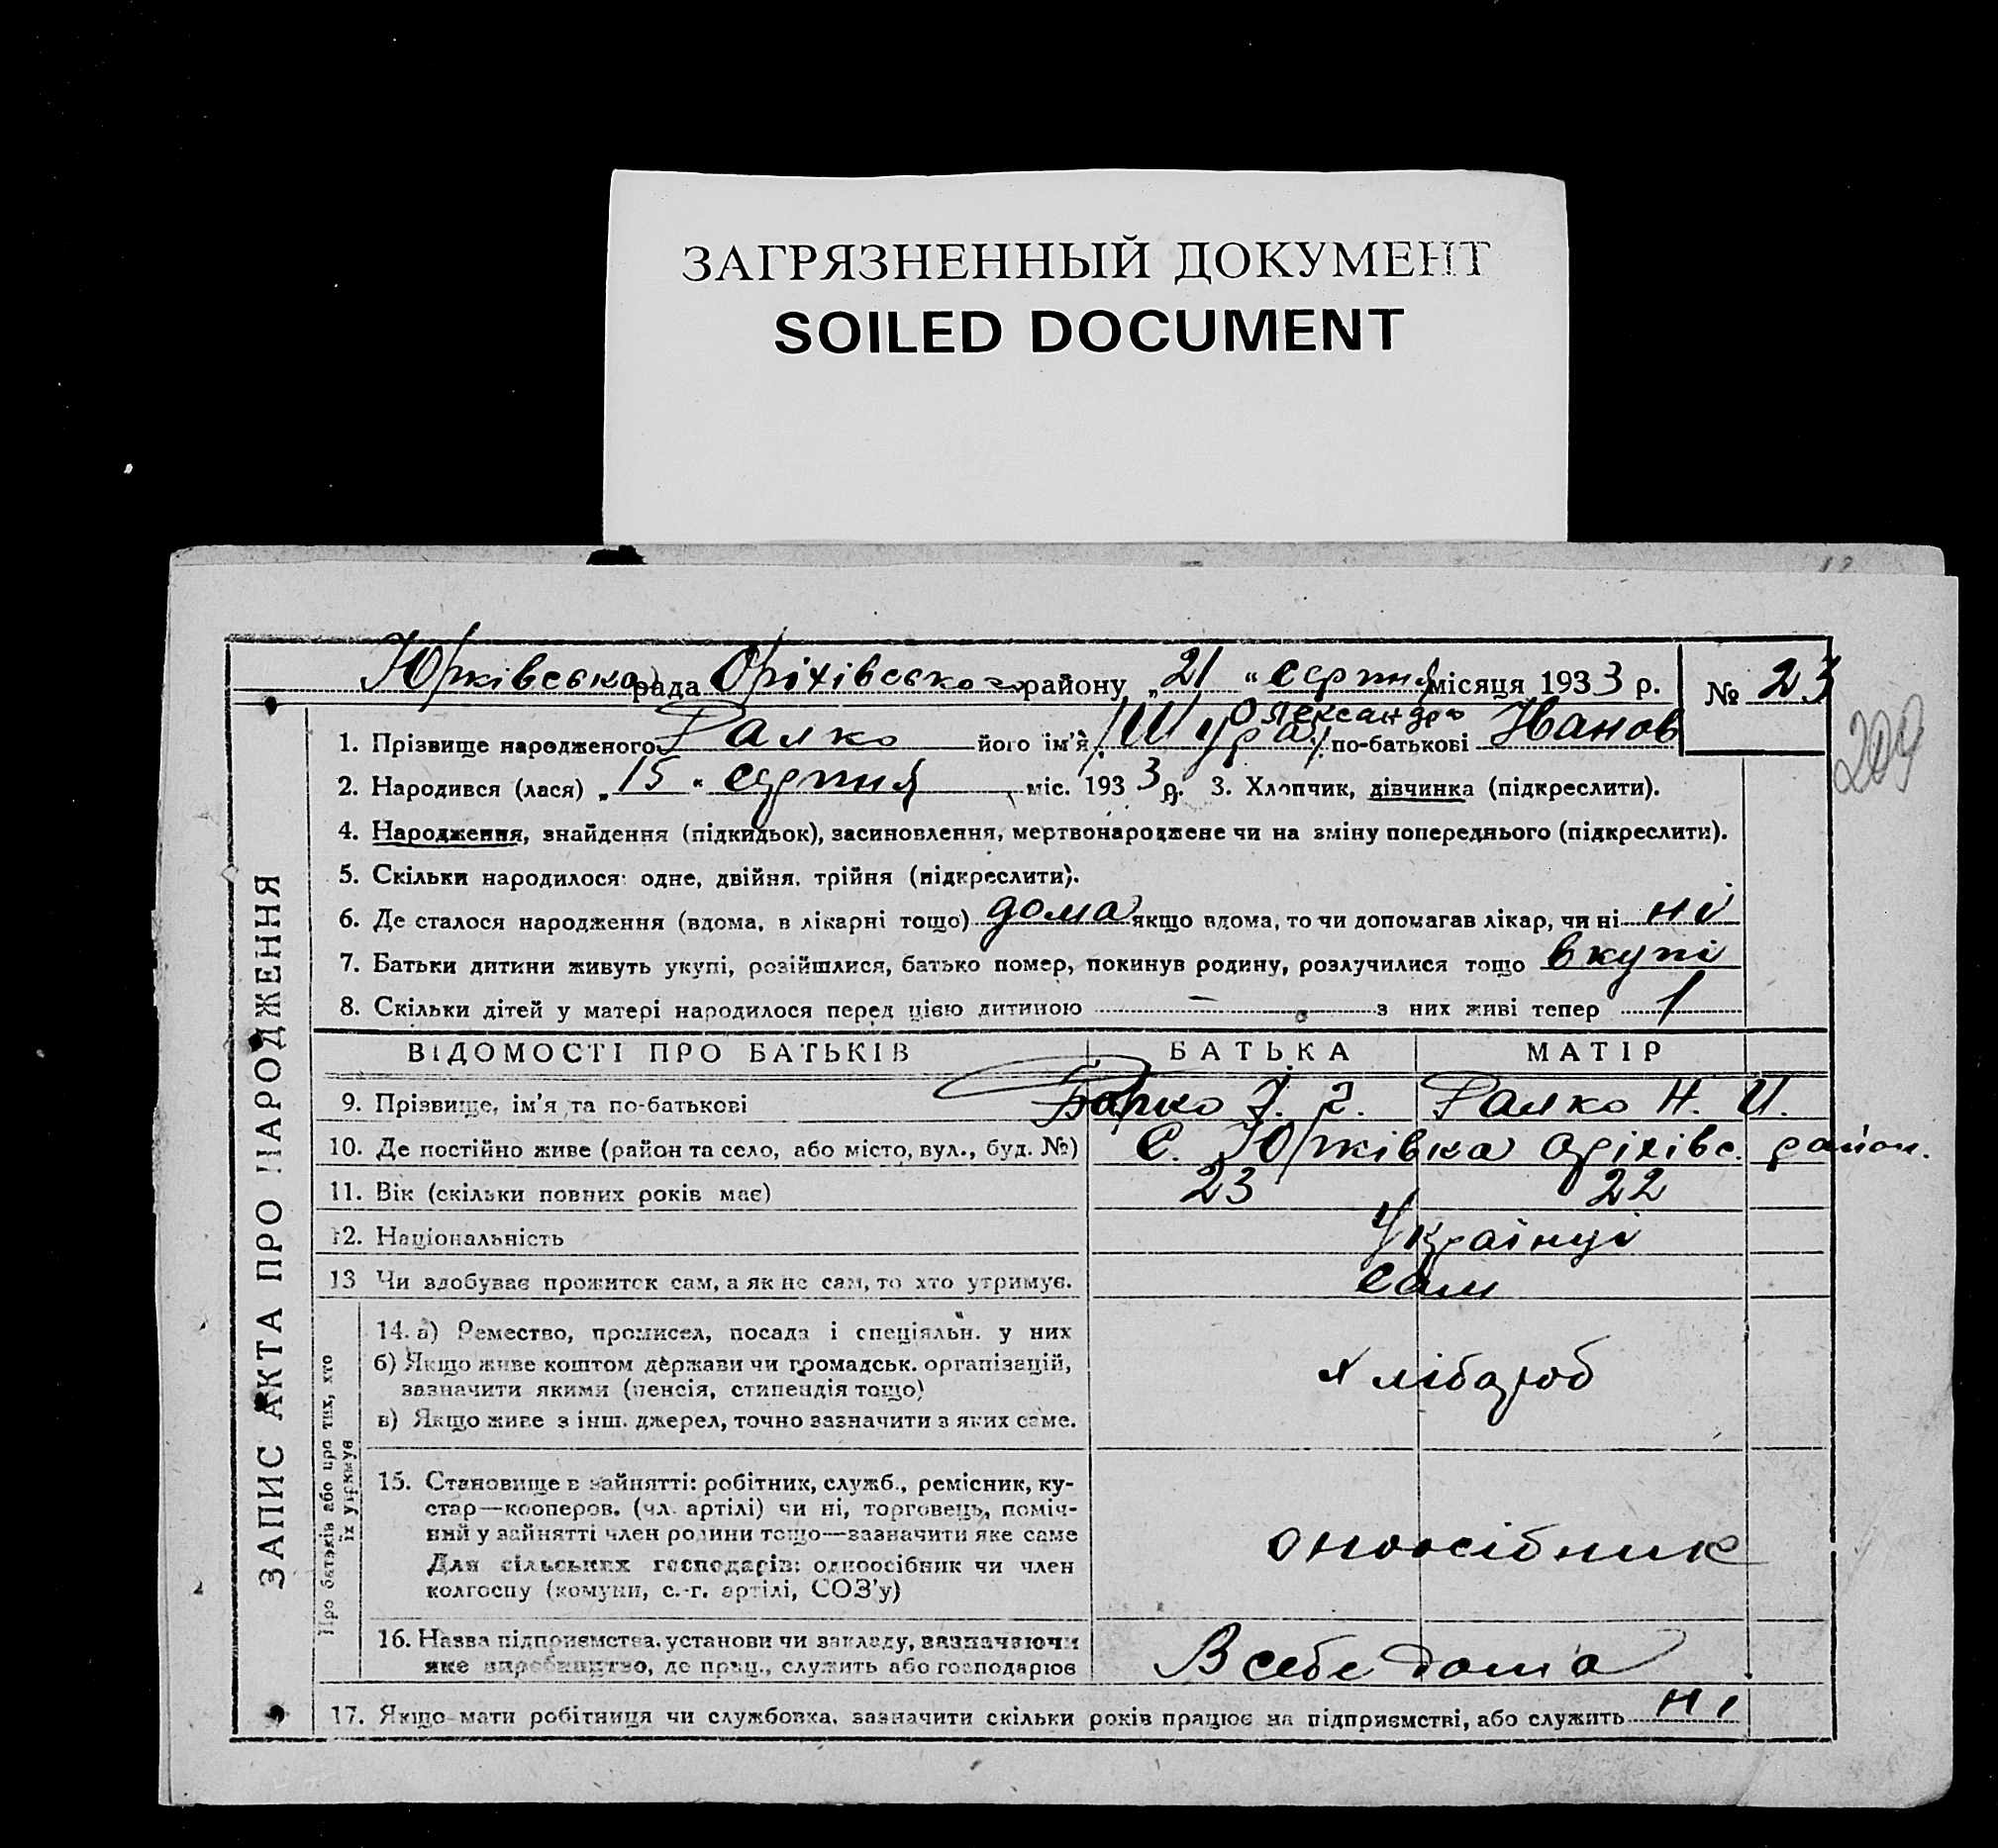 ЗАГРЯЗНЕННЫЙ ДОКУМЕНТ
SOILED DOCUMENT
Юрківська рада Оріхівського району „21“ серпня місяця 1933 р. № 23
209
ЗАПИС АКТА ПРО НАРОДЖЕННЯ
Олександра
1. Прізвище народженого Ралко його ім'я /Шура/ по-батькові Иванов
2. Народився (лася) „15“ серпня міс. 1933 р. 3. Хлопчик, дівчинка (підкреслити).
4. Народження, знайдення (підкидьок), засиновлення, мертвонароджене чи на зміну попереднього (підкреслити).
5. Скільки народилося: одне, двійня, трійня (підкреслити).
6. Де сталося народження (вдома, в лікарні тощо) дома якщо вдома, то чи допомагав лікар, чи ні ні
7. Батьки дитини живуть укупі, розійшлися, батько помер, покинув родину, розлучилися тощо вкупі
8. Скільки дітей у матері народилося перед цією дитиною — з них живі тепер 1
ВІДОМОСТІ ПРО БАТЬКІВ БАТЬКА МАТІР
9. Прізвище, ім'я та по-батькові Ралко Н. И.
10. Де постійно живе (район та село, або місто, вул., буд. №) С. Юрківка Оріхівс. район.
11. Вік (скільки повних років має) 23 22
12. Національність Українці
13 Чи здобуває прожиток сам, а як не сам, то хто утримує. Сам
Про батьків або про тих, хто
їх утримує
14. а) Ремество, промисел, посада і спеціяльн. у них
б) Якщо живе коштом держави чи громадськ. організацій,
зазначити якими (пенсія, стипендія тощо)
в) Якщо живе з інш. джерел, точно зазначити з яких саме.
хлібороб
15. Становище в зайнятті: робітник, служб., ремісник, ку-
стар—кооперов. (чл. артілі) чи ні, торговець, поміч-
ний у зайнятті член родини тощо—зазначити яке саме
Для сільських господарів: одноосібник чи член
колгоспу (комуни, с.-г. артілі, СОЗ'у)
16. Назва підприємства, установи чи закладу, зазначаючи
яке виробництво, де прац., служить або господарює
В себе дома
17. Якщо мати робітниця чи службовка, зазначити скільки років працює на підприємстві, або служить ні